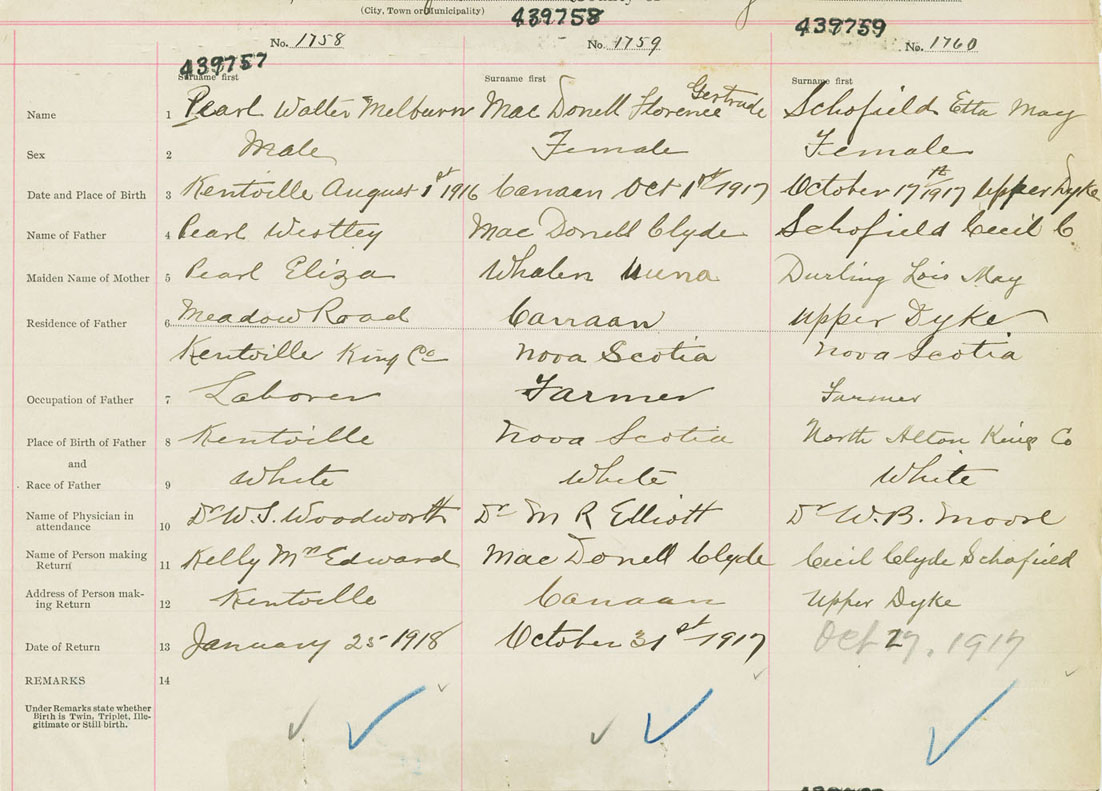 (City, Town or Municipality)
439757 439758 439759
No. 1758 No. 1759 No. 1760
Surname first Surname first Surname first
Name 1 Pearl Walter Melburn Mac Donell Florence Gertrude Schofield Etta May
Sex 2 Male Female Female
Date and Place of Birth 3 Kentville August 1st 1916 Canaan Oct 1st 1917 October 17th 1917 Upper Dyke
Name of Father 4 Pearl Westley Mac Donell Clyde Schofield Cecil C
Maiden Name of Mother 5 Pearl Eliza Whalen Durling Lois May
Residence of Father 6 Meadow Road Canaan Upper Dyke
Kentville King Co Nova Scotia Nova Scotia
Occupation of Father 7 Laborer Farmer Farmer
Place of Birth of Father 8 Kentville Nova Scotia North Alton Kings Co
and
Race of Father 9 White White White
Name of Physician in
attendance 10 Dr W.S. Woodworth Dr M R Elliott Dr W.B. Moore
Name of Person making
Return 11 Kelly Mrs Edward Mac Donell Clyde Cecil Clyde Schofield
Address of Person mak-
ing Return 12 Kentville Canaan Upper Dyke
Date of Return 13 January 25 1918 October 31st 1917 Oct 27, 1917
REMARKS 14
Under Remarks state whether
Birth is Twin, Triplet, Ille-
gitimate or Still-birth.